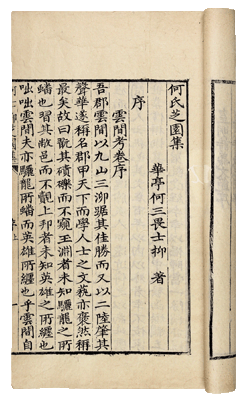 何氏芝園集
華亭何三畏士抑 著
序
雲間考卷序
吾郡雲間以九山三泖踞其佳勝而又以二陸肇其
聲華遂稱名郡甲天下而學人士之文蓺亦褒然稱
最矣故曰觀其磧礫而不窺玉淵者未知驪龍之所
蟠也習其敝邑而不覩上邦者未知英雄之所纏也
咄咄雲間夫亦驪龍所蟠而英雄所纏也乎雲間自